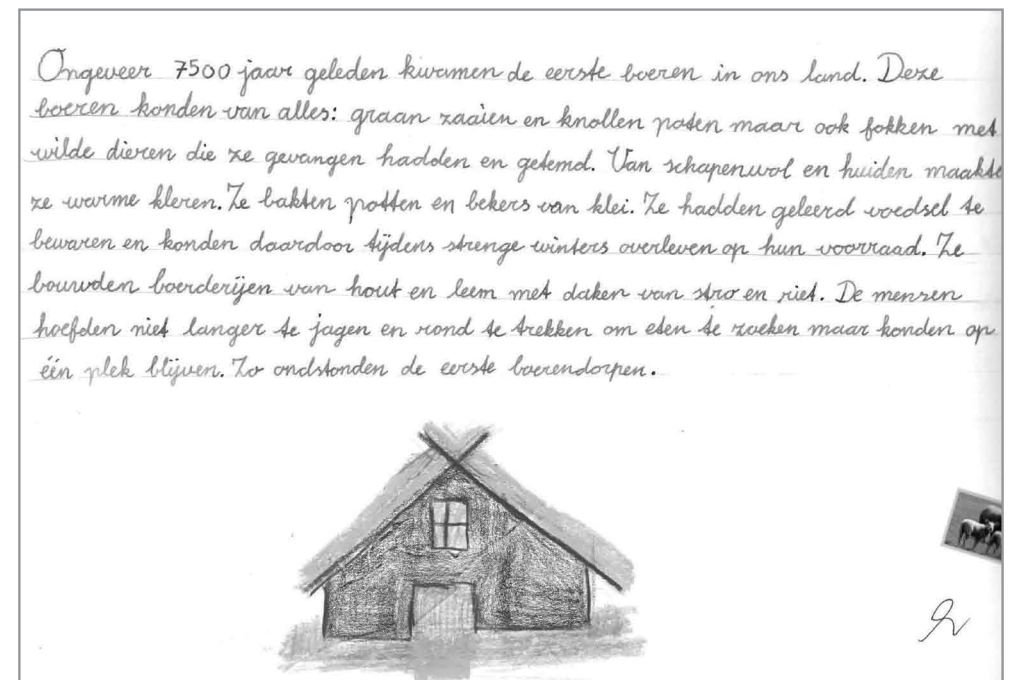 Ongeveer 7500 jaar geleden kwamen de eerste boeren in ons land. Deze
boeren konden van alles: graan zaaien en knollen poten maar ook fokken met
wilde dieren die ze gevangen hadden en getemd. Van schapenwol en huiden maakte
ze warme kleren. Ze bakten potten en bekers van klei. Ze hadden geleerd voedsel te
bewaren en konden daardoor tijdens strenge winters overleven op hun voorraad. Ze
bouwden boerderijen van hout en leem met daken van stro en riet. De mensen
hoefden niet langer te jagen en rond te trekken om eten te zoeken maar konden op
één plek blijven. Zo ondstonden de eerste boerendorpen.